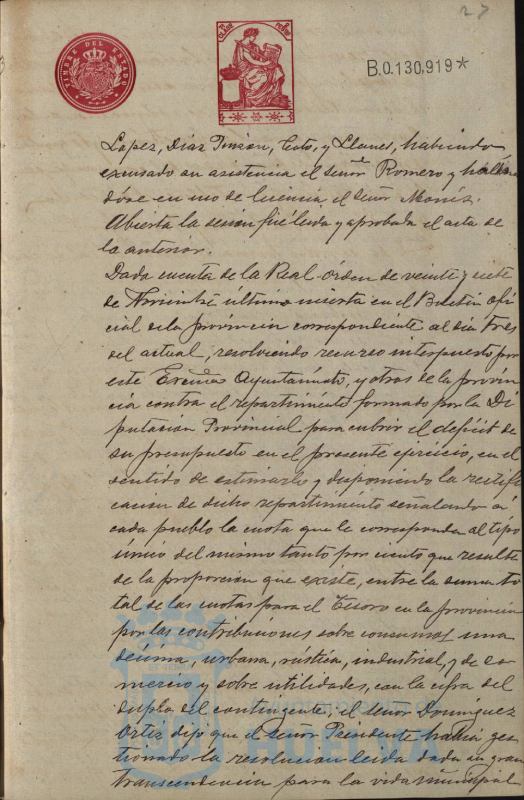 27
TIMBRE DEL ESTADO
B.0.130,919*
Lopez, Diaz Coto, y Llanes, habiendo
escusado su asistencia el señor Romero y hallan
dose en uso de licencia el Señor Monis.
Abierta la sesion fué leida y aprobada el acta de
la anterior.
Dada cuenta de la Real órden de veinte y siete
de Noviembre último inserta en el Boletin ofi
cial de la provincia correspondiente al dia tres
del actual, resolviendo recurso interpuesto por
este Excmo Ayuntamiento, y otros de la provin
cia contra el repartimiento formado por la Di
putacion Provincial para cubrir el deficit de
su presupuesto en el presente ejercicio, en el
sentido de estimarlo y disponiendo la rectifi
cacion de dicho repartimiento señalando á
cada pueblo la cuota que le corresponda al tipo
único del mismo tanto por ciento que resulte
de la proporcion que existe, entre la suma to
tal de las cuotas para el Tesoro en la provincia
por las contribuciones sobre consumos, una
décima, urbana, rústica, industrial, y de co
mercio y sobre utilidades, con la cifra del
duplo del contingente; el señor Dominguez
Ortiz dijo que el señor Presidente habia ges
tionado la resolucion leida dada su gran
transcendencia para la vida municipal
HUELVA